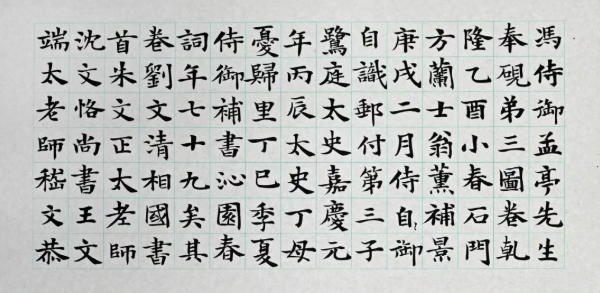 馮侍御孟亭先生
奉硯弟三圖卷乹
隆乙酉小春石門
方蘭士翁薰補景
庚戌二月侍御自
自識郵付第三子
鷺庭太史嘉慶元
年丙辰太史丁母
憂歸里丁巳季夏
侍御補書沁園春
詞年七十九矣其
卷劉文清相國書
首朱文正太老師
沈文恪尚書王文
端太老師嵇文恭